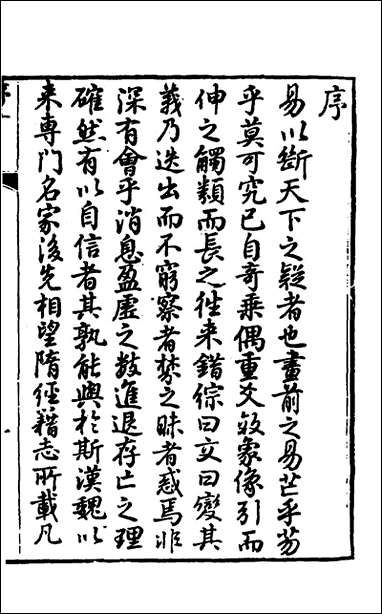 序
易以斷天下之疑者也畫前之易芒乎芴
乎莫可究已自奇乘偶重爻效象像引而
伸之觸類而長之往来錯綜曰文曰變其
義乃迭出而不窮察者禁之昧者惑焉非
深有會乎消息盈虛之数進退存亡之理
確然有以自信者其孰能與於斯漢魏以
来専門名家後先相望隋經籍志所載凡
序